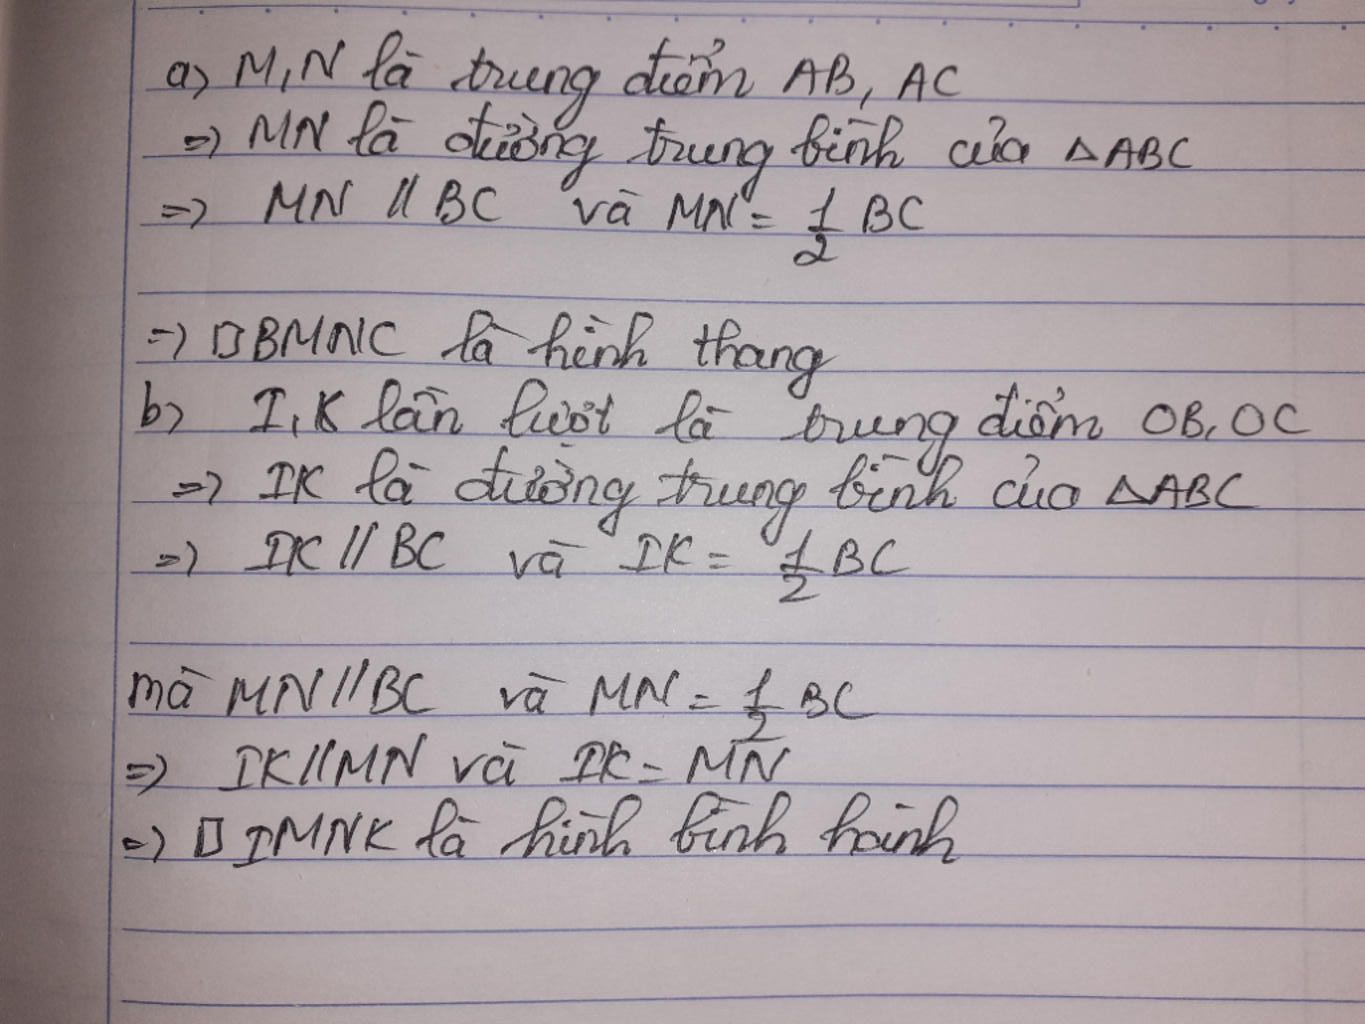 a) M, N là trung điểm AB, AC
=> MN là đường trung bình của △ABC
=> MN // BC và MN = 1/2 BC
=> □BMNC là hình thang
b) I, K lần lượt là trung điểm OB, OC
=> IK là đường trung bình của △ABC
=> IK // BC và IK = 1/2 BC
mà MN // BC và MN = 1/2 BC
=> IK // MN và IK = MN
=> □ IMNK là hình bình hành